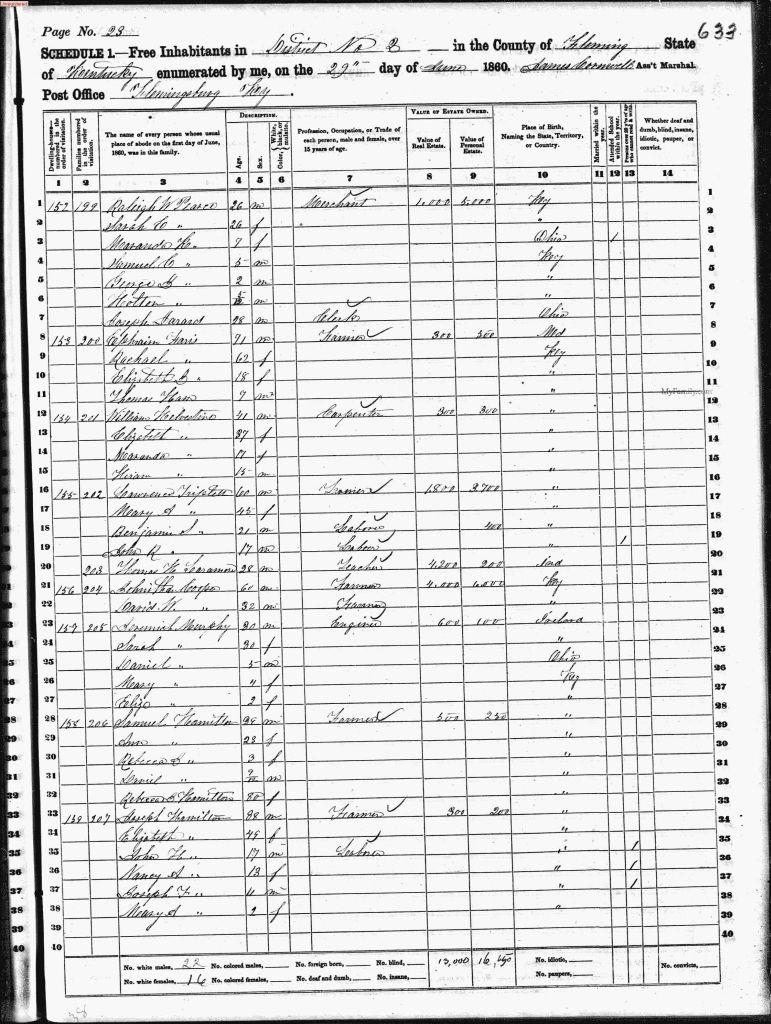 633
Page No. 23
SCHEDULE 1.—Free Inhabitants in District No 2 in the County of Fleming State
of Kentucky enumerated by me, on the 29th day of June 1860. James Ass't Marshal.
Post Office Flemingsburg Key
Dwelling-houses—numbered in the order of visitation.
Families numbered in the order of visitation.
The name of every person whose usual place of abode on the first day of June, 1860, was in this family.
DESCRIPTION.
Age.
Sex.
Color, White, black, or mulatto.
Profession, Occupation, or Trade of each person, male and female, over 15 years of age.
VALUE OF ESTATE OWNED.
Value of Real Estate.
Value of Personal Estate.
Place of Birth, Naming the State, Territory, or Country.
Married within the year.
Attended School within the year.
Persons over 20 y'rs of age who cannot read & write.
Whether deaf and dumb, blind, insane, idiotic, pauper, or convict.
1 2 3 4 5 6 7 8 9 10 11 12 13 14
1 152 199 Raleigh W Pearce 26 m Merchant 1,000 5,000 Key 1
2 Sarah C " 26 f " 2
3 Maranda " 7 f Ohio 1 3
4 Samuel C " 5 m Key 4
5 George " 2 m " 5
6 " m " 6
7 Joseph 28 m Clerk Ohio 7
8 153 200 Ephraim Faris 71 m Farmer 300 500 Md 8
9 Rachael " 62 f Key 9
10 Elizabeth " 18 f " 10
11 Thomas Ham 9 m " 11
12 154 201 William 41 m Carpenter 300 300 " 12
13 Elizabeth " 37 f " 13
14 Maranda " 17 f " 14
15 Hiram " 15 m " 15
16 155 202 Lawrence Triplett 60 m Farmer 1800 3700 " 16
17 Mary A " 45 f " 17
18 Benjamin S " 21 m Laborer 400 " 18
19 John R " 17 m Labour " 1 19
20 203 Thomas W 28 m Teacher 4200 200 Ind 20
21 156 204 Cooper 60 m Farmer 4,000 6,000 Key 21
22 David W. " 32 m Farmer " 22
23 157 205 Jeremiah Murphy 30 m 600 100 Ireland 23
24 Sarah " 30 f " 24
25 Daniel " 5 m Ohio 25
26 Mary " 4 f Key 26
27 Eliza " 2 f " 27
28 158 206 Samuel Hamilton m Farmer 500 250 " 28
29 Ann " 28 f " 29
30 Rebecca " 3 f " 30
31 " m " 31
32 Rebecca Hamilton 80 f " 32
33 159 207 Joseph Hamilton m Farmer 300 200 " 33
34 Elizabeth " 49 f " 34
35 John H " 17 m Laborer " 1 35
36 Nancy A " 13 f " 1 36
37 Joseph F " 11 m " 1 37
38 Mary A " 2 f " 38
39 39
40 40
No. white males, 22 No. colored males, No. foreign born, No. blind, 13,000 No. idiotic, No. convicts,
No. white females, 16 No. colored females, No. deaf and dumb, No. insane, No. paupers,
MyFamily.com